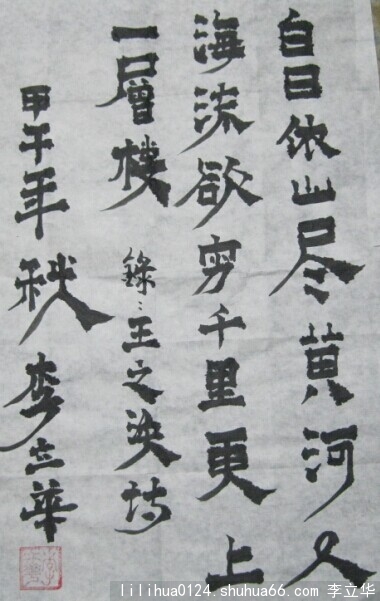 白日依山尽黄河入
海流欲穷千里更上
一層樓 錄:王之涣诗
甲午年秋 李立華
lilihua0124.shuhua66.com 李立华